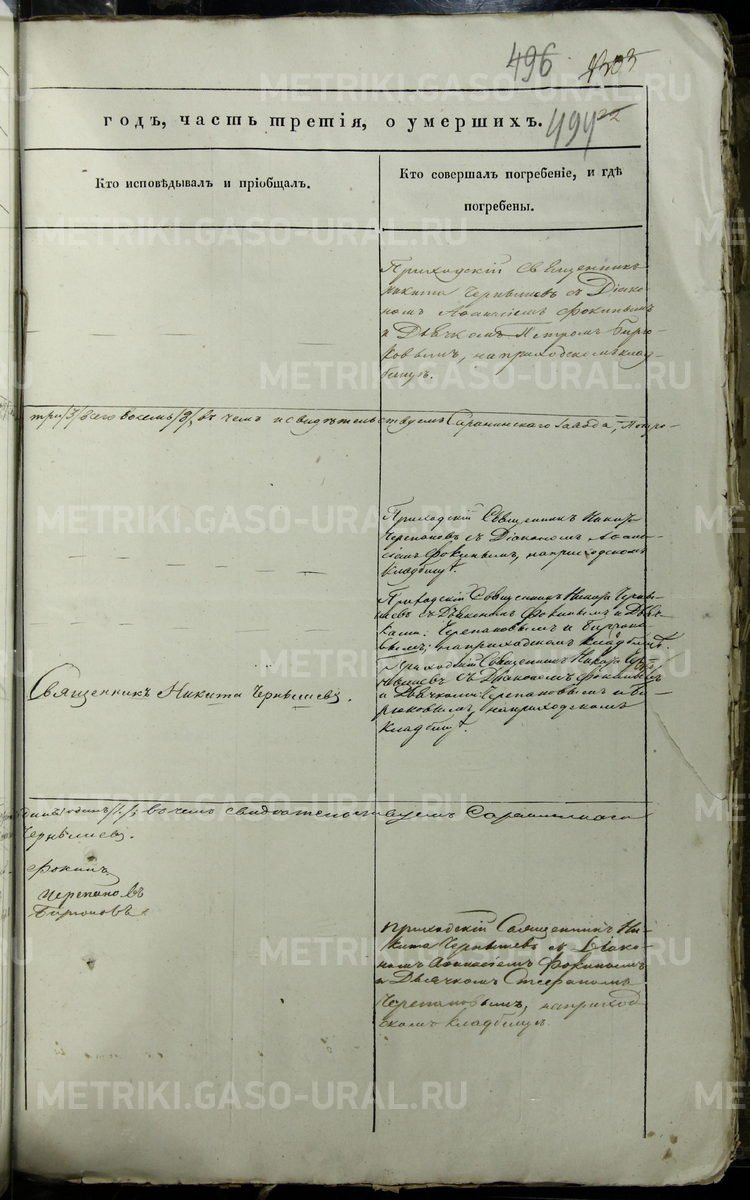 496
годъ, часть третія, о умершихъ.
494
Кто исповѣдывалъ и пріобщалъ.
Кто совершалъ погребеніе, и гдѣ
погребены.
Приходскій Священникъ
Никита Чернышевъ съ Діако
номъ Аѳанасіемъ Фокинымъ
и Дьячкомъ Петромъ Бирю
ковымъ, на приходскомъ клад
бищѣ.
три /3/ всего восемь /8/, въ чемъ и свидѣтельствуемъ Саранинскаго Завода, Петро-
Приходскій Священникъ Никита
съ Діакономъ Аѳана
сіемъ Фокинымъ, на приходскомъ
кладбищѣ.
Приходскій Священникъ Никита Черны
шевъ съ Діакономъ Фокинымъ и Дьяч
ками: Черепановымъ и Бирюко
вымъ, на приходскомъ кладбищѣ.
Приходскій Священникъ Никита Чер
нышевъ съ Діакономъ Фокинымъ
и Дьячками Черепановымъ и Би
рюковымъ, на приходскомъ
кладбищѣ.
Священникъ Никита Чернышевъ.
одинъ /1/, въ чемъ свидѣтельствуемъ Саранинскаго
Чернышевъ.
Фокинъ
Черепановъ
Бирюковъ
Приходскій Священникъ Ни
кита Чернышевъ съ Діако
номъ Аѳанасіемъ Фокинымъ
и Дьячкомъ Стефаномъ
Черепановымъ, на приход
скомъ кладбищѣ.
METRIKI.GASO-URAL.RU